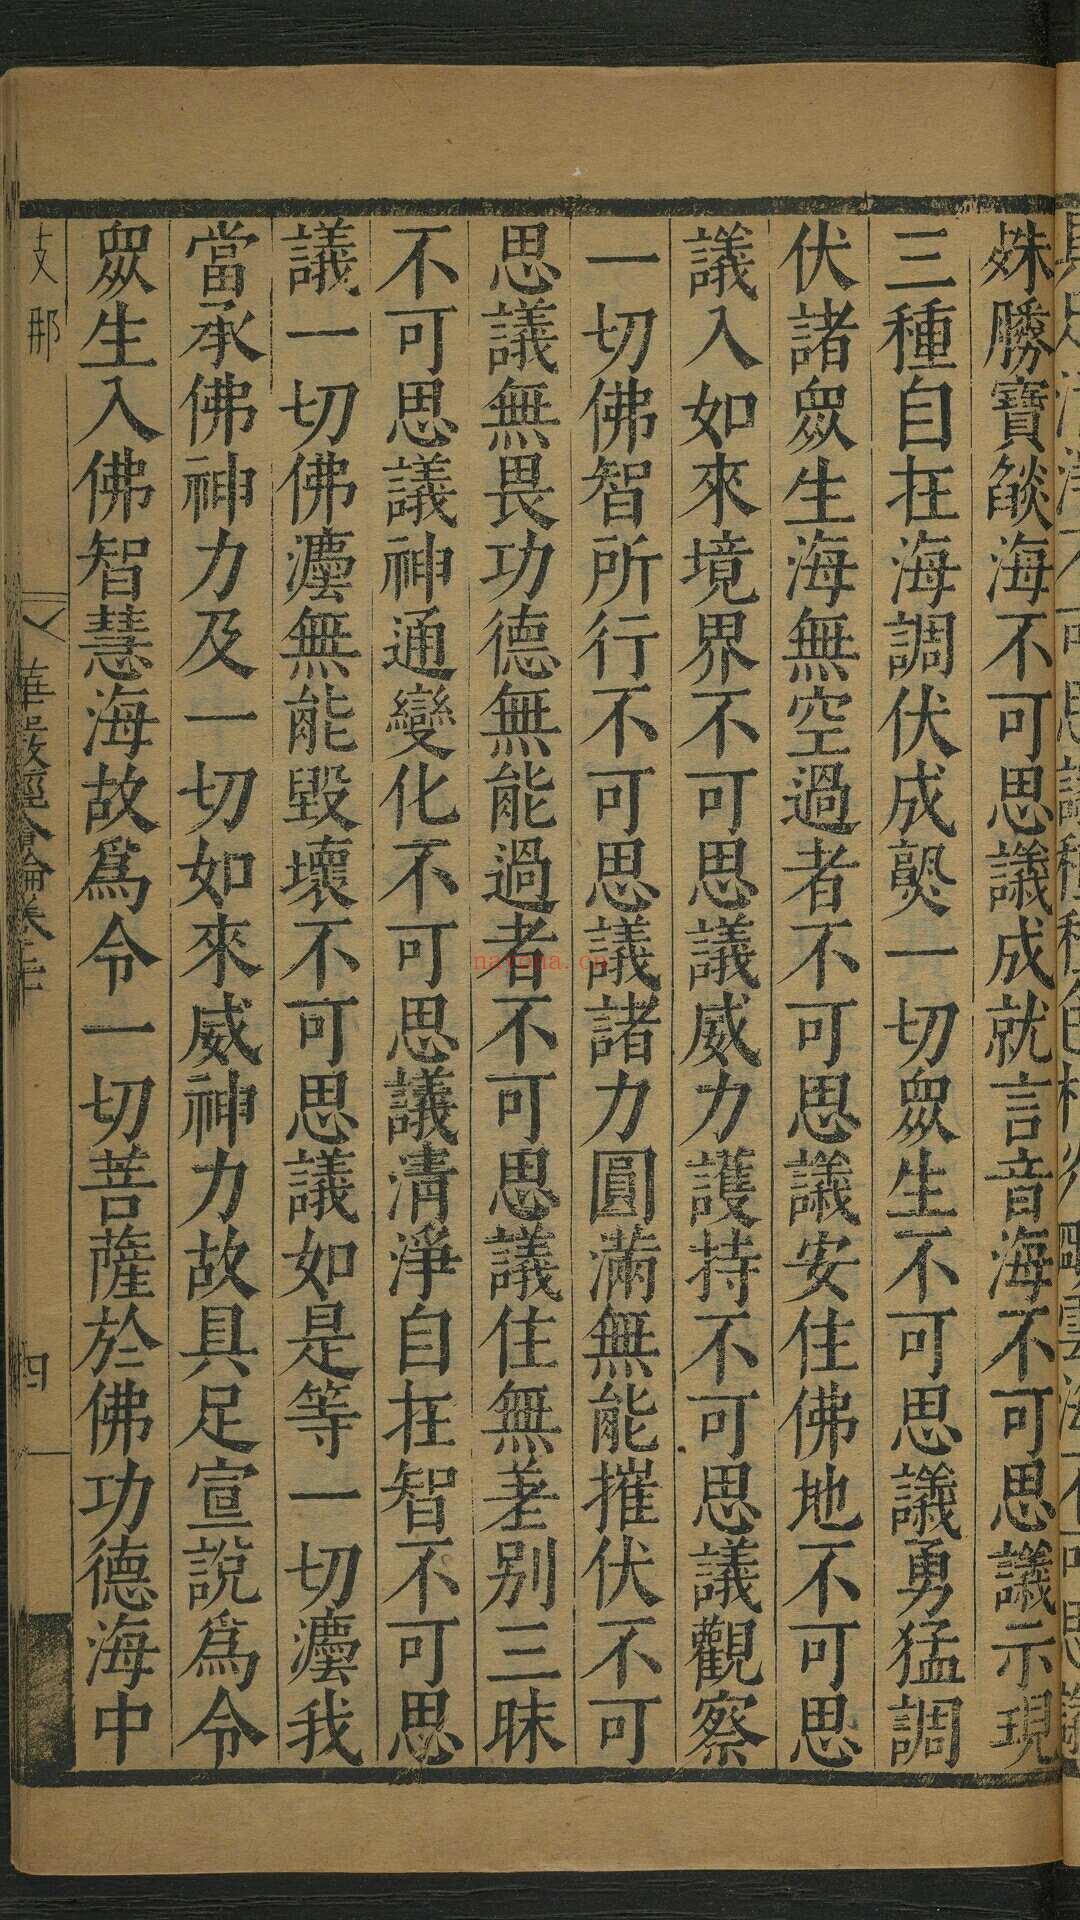 姝勝寶燄海不可思議成就言音海不可思議示現
三種自在海調伏成𤍨一切眾生不可思議勇猛調
伏諸眾生海無空過者不可思議安住佛地不可思
議入如來境界不可思議威力護持不可思議觀察
一切佛智所行不可思議諸力圓滿無能摧伏不可
思議無畏功德無能過者不可思議住無差別三昧
不可思議神通變化不可思議清淨自在智不可思
議一切佛灋無能毀壞不可思議如是等一切灋我
當承佛神力及一切如來威神力故具足宣說爲令
眾生入佛智慧海故爲令一切菩薩於佛功德海中
支那
華嚴經合論卷二十
四
nayona.cn